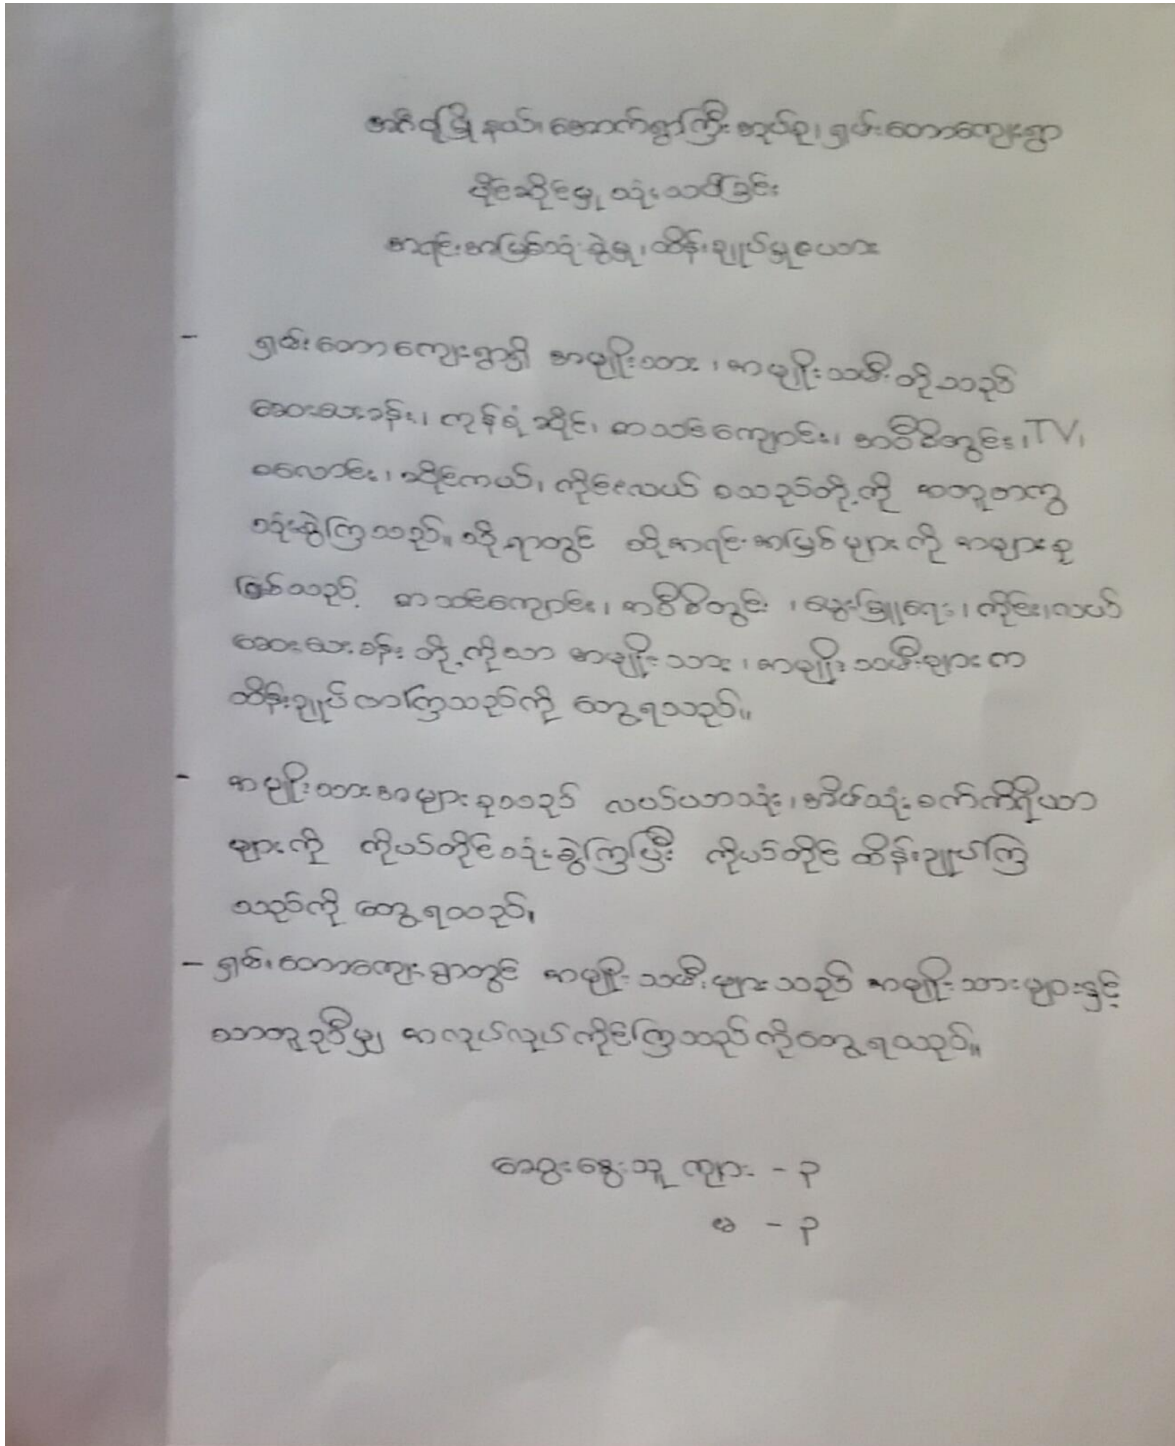 အင်္ဂပူမြို့နယ်၊ အောက်ရွာကြီးအုပ်စု၊ ရှမ်းတောကျေးရွာ
ပိုင်ဆိုင်မှု သုံးသပ်ခြင်း
အရင်းအမြစ်သုံးစွဲမှု၊ ထိန်းချုပ်မှုဇယား
- ရှမ်းတောကျေးရွာရှိ အမျိုးသား၊ အမျိုးသမီးတို့သည်
ဆေးပေးခန်း၊ ကုန်စုံဆိုင်၊ စာသင်ကျောင်း၊ အဝီစိတွင်း၊ TV၊
စလောင်း၊ ဆိုင်ကယ်၊ ကိုင်းလယ် စသည်တို့ကို အတူတကွ
သုံးစွဲကြသည်။ သို့ရာတွင် ထိုအရင်းအမြစ်များကို အများစု
ဖြစ်သည့် စာသင်ကျောင်း၊ အဝီစိတွင်း၊ မွေးမြူရေး၊ ကိုင်း၊လယ်
ဆေးပေးခန်း တို့ကိုသာ အမျိုးသား၊ အမျိုးသမီးများက
ထိန်းချုပ်လာကြသည်ကို တွေ့ရသည်။
- အမျိုးသားအများစုသည် လယ်ယာသုံး၊ အိမ်သုံးစက်ကိရိယာ
များကို ကိုယ်တိုင်သုံးစွဲကြပြီး ကိုယ်တိုင်ထိန်းချုပ်ကြ
သည်ကို တွေ့ရသည်။
- ရှမ်းတောကျေးရွာတွင် အမျိုးသမီးများသည် အမျိုးသားများနှင့်
သာတူညီမျှ အလုပ်လုပ်ကိုင်ကြသည်ကိုတွေ့ရသည်။
ဆွေးနွေးသူ ကျား - ၃
မ - ၃